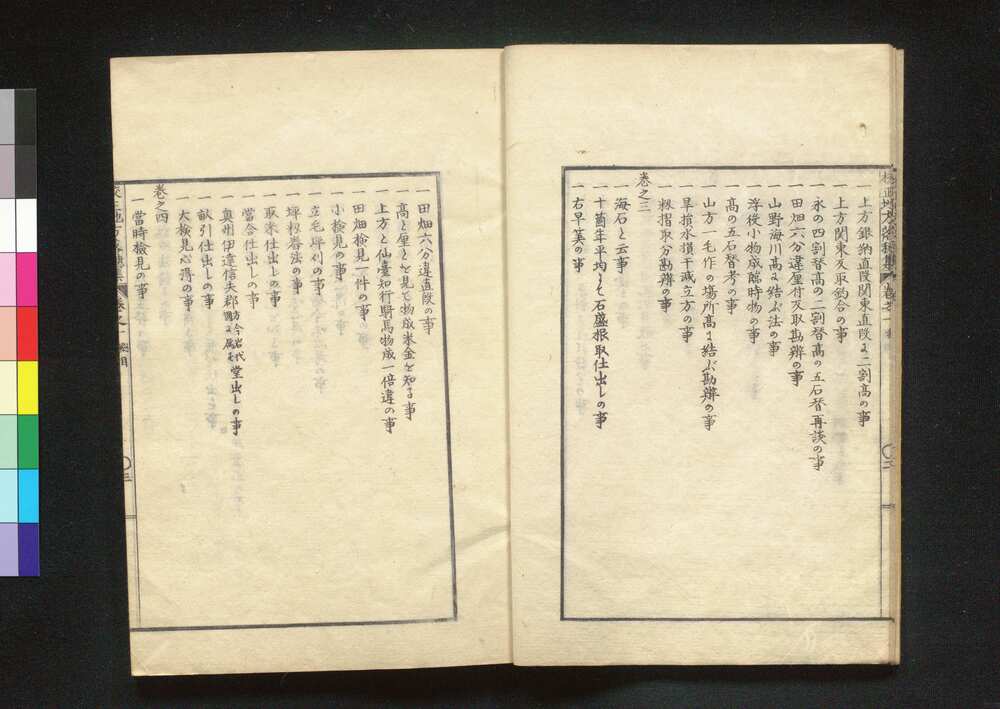 一上方銀納直段関東直段ゟ二割高の事
一上方関東反取釣合の事
一永の四割替高の二割替高の五石替再談の事
一田畑六分違厘付反取勘辨の事
一山野海川高ゟ結ふ法の事
一浮役小物成臨時物の事
一高の五石替考の事
一山方一毛作の場所高ゟ結ふ勘辨の事
一旱損水損干減立方の事
一籾摺取分勘辨の事
巻之三
一海石と云事
一十箇年平均と石盛根取仕出しの事
一右早算の事
一田畑六分違直段の事
一高と厘とを見て物成米金を知る事
一上方と仙臺知行騎馬物成一倍違の事
一田畑検見一件の事
一小検見の事
一立毛坪刈の事
一坪籾舂法の事
一取米仕出しの事
一當合仕出しの事
一奥州伊達信夫郡方今岩代國ニ属す堂出しの事
一畝引仕出しの事
一大検見心得の事
巻之四
一當時検見の事